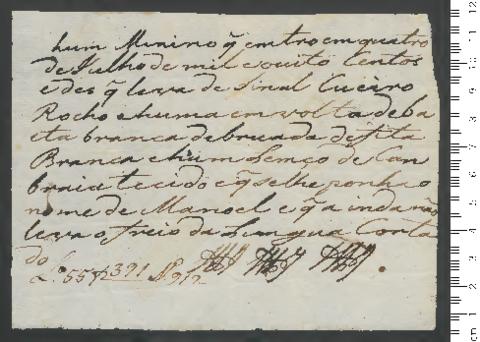 hum Minino q̃ emtro em quatro
de Julho de mil e ouito Centos
e des q̃ leva de sinal Cueiro
Rocho e huma em volta de ba
eta branca debruada de fita
Branca e hum Lemço de Can
braia tecido e q̃ se lhe ponha o
nome de Manoel e q̃ a inda não
leva o freio da Lingua Corta
do
Lº 55 f 391 Nº 912